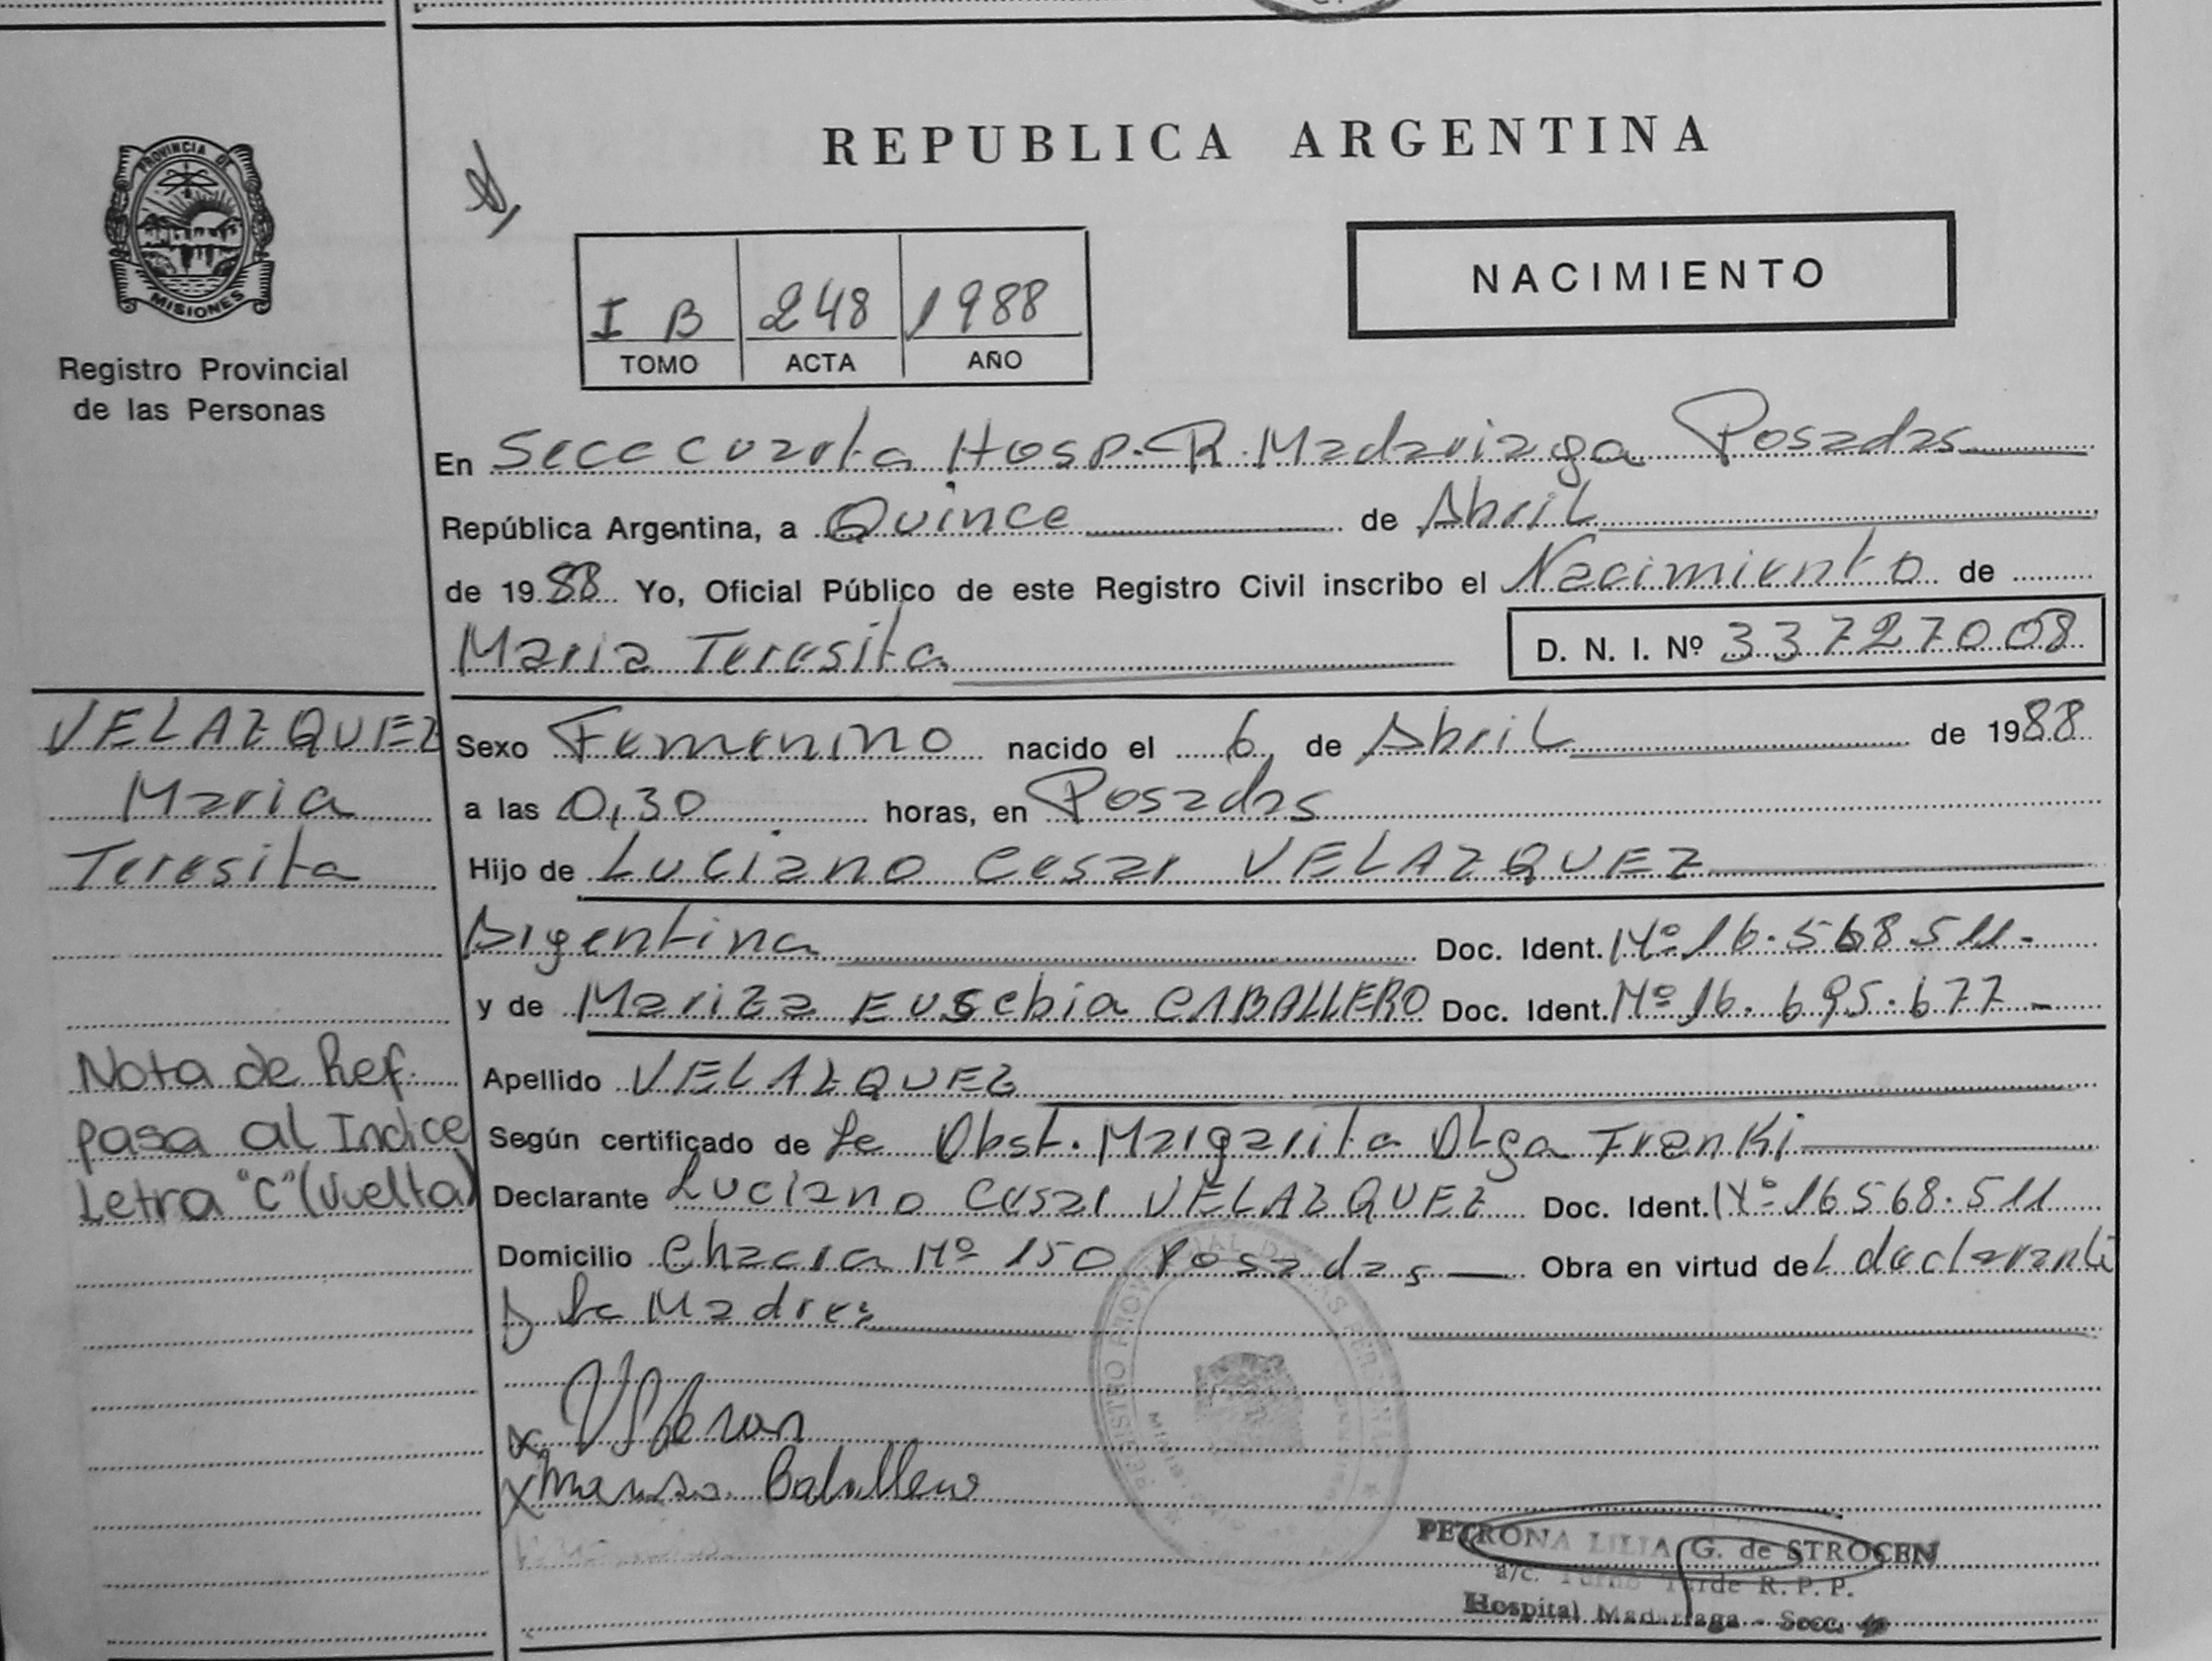 PROVINCIA DE
MISIONES
Registro Provincial
de las Personas
REPUBLICA ARGENTINA
I B 248 1988
TOMO ACTA AÑO
NACIMIENTO
En Secc cuarta Hosp. R. Madariaga Posadas
República Argentina, a Quince de Abril
de 1988 Yo, Oficial Público de este Registro Civil inscribo el Nacimiento de
Maria Teresita D. N. I. Nº 33727008
VELAZQUEZ
Maria
Teresita
Sexo Femenino nacido el 6 de Abril de 1988
a las 0,30 horas, en Posadas
Hijo de Luciano Cesar VELAZQUEZ
Argentina Doc. Ident. Nº 16.568.511.-
y de Mariza Eusebia CABALLERO Doc. Ident. Nº 16.695.677-
Nota de Ref.
pasa al Indice
Letra "C" (Vuelta)
Apellido VELAZQUEZ
Según certificado de La Obst. Margarita Olga Frenki
Declarante Luciano Cesar VELAZQUEZ Doc. Ident. Nº 16568.511
Domicilio Chacra Nº 150 Posadas Obra en virtud del declarante
y la Madre
Caballero
REGISTRO PROVINCIAL DE LAS PERSONAS
PETRONA LILIA G. de STROCEN
a/c. Turno Tarde R. P. P.
Hospital Madariaga - Secc.